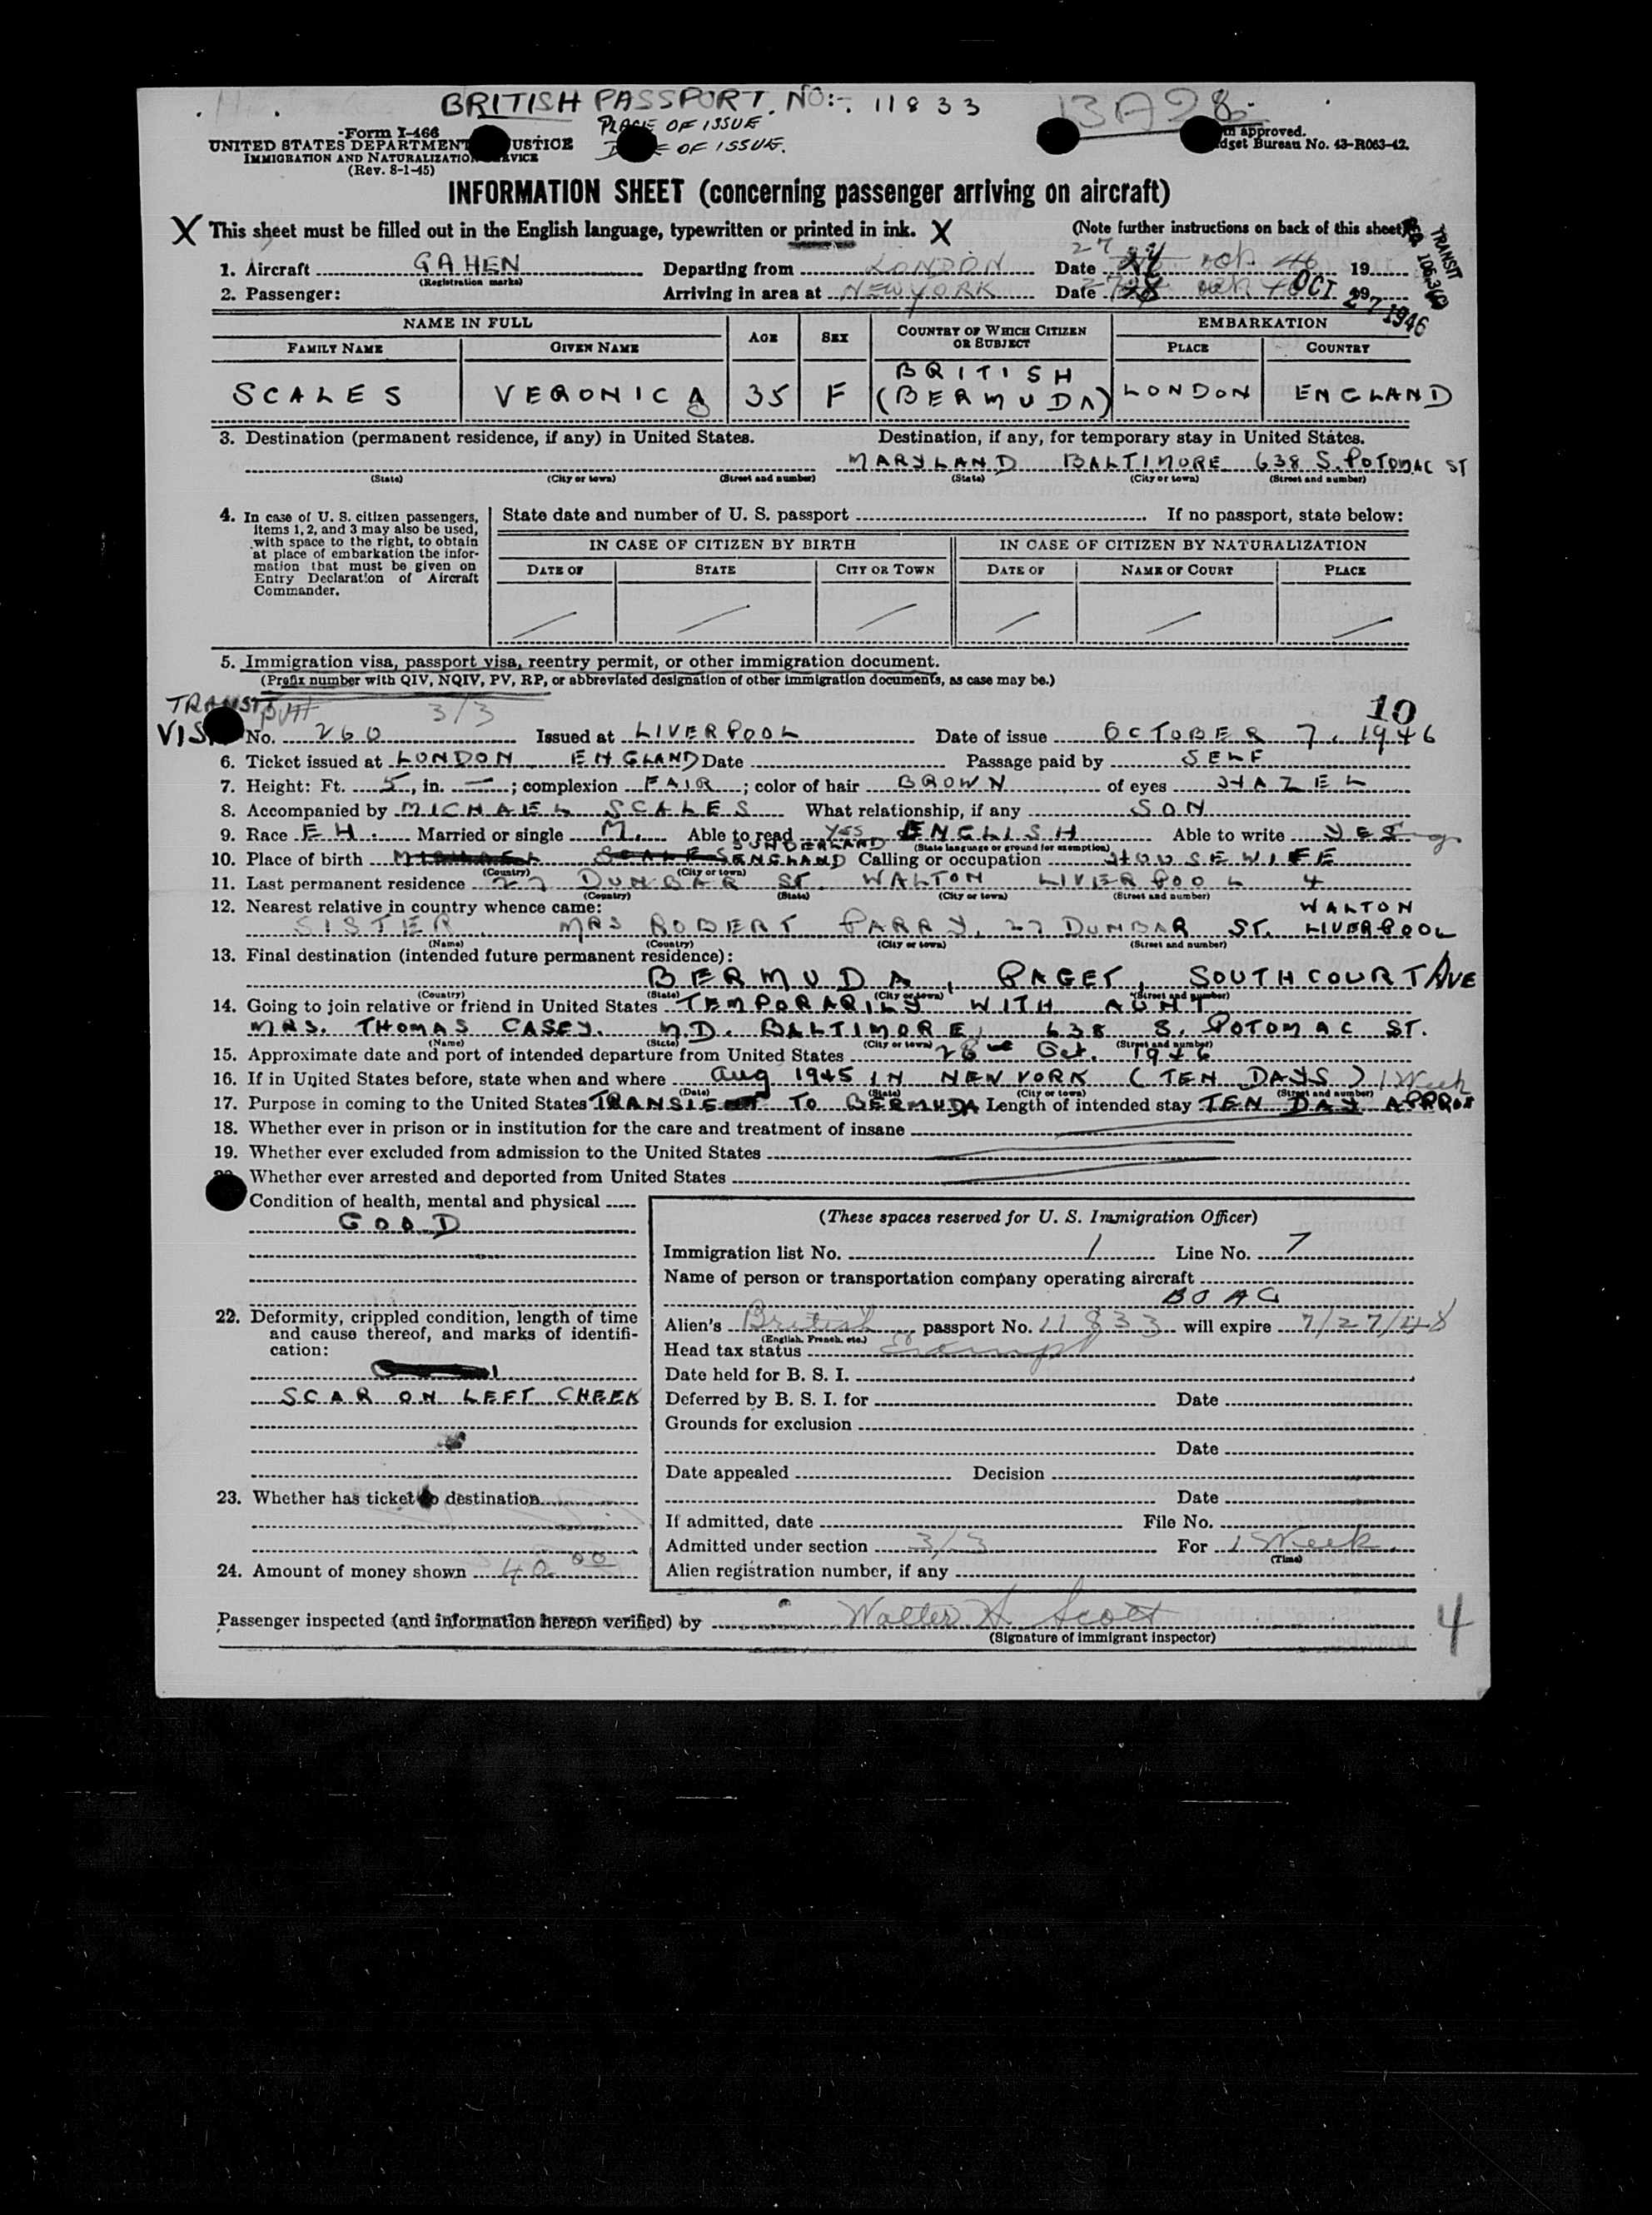 BRITISH PASSPORT. NO:-. 11833
PLACE OF ISSUE
OF ISSUE.
13A28
Form I-466
UNITED STATES DEPARTMENT JUSTICE
IMMIGRATION AND NATURALIZATION SERVICE
(Rev. 8-1-45)
approved.
Budget Bureau No. 43-R063-42.
INFORMATION SHEET (concerning passenger arriving on aircraft)
X This sheet must be filled out in the English language, typewritten or printed in ink. X
(Note further instructions on back of this sheet)
TRANSIT
1. Aircraft GAHEN Departing from LONDON Date 27 Oct. 46 19
(Registration marks)
2. Passenger: Arriving in area at NEW YORK Date 19
OCT 27 1946
NAME IN FULL AGE SEX COUNTRY OF WHICH CITIZEN OR SUBJECT EMBARKATION
FAMILY NAME GIVEN NAME PLACE COUNTRY
SCALES VERONICA 35 F BRITISH (BERMUDA) LONDON ENGLAND
3. Destination (permanent residence, if any) in United States. Destination, if any, for temporary stay in United States.
MARYLAND BALTIMORE 638 S. POTOMAC ST
(State) (City or town) (Street and number) (State) (City or town) (Street and number)
4. In case of U. S. citizen passengers, items 1, 2, and 3 may also be used, with space to the right, to obtain at place of embarkation the information that must be given on Entry Declaration of Aircraft Commander.
State date and number of U. S. passport . If no passport, state below:
IN CASE OF CITIZEN BY BIRTH IN CASE OF CITIZEN BY NATURALIZATION
DATE OF STATE CITY OR TOWN DATE OF NAME OF COURT PLACE
5. Immigration visa, passport visa, reentry permit, or other immigration document.
(Prefix number with QIV, NQIV, PV, RP, or abbreviated designation of other immigration documents, as case may be.)
TRANSIT 3/3 10
VISA No. 260 Issued at LIVERPOOL Date of issue OCTOBER 7, 1946
6. Ticket issued at LONDON ENGLAND Date Passage paid by SELF
7. Height: Ft. 5, in. —; complexion FAIR; color of hair BROWN of eyes HAZEL
8. Accompanied by MICHAEL SCALES What relationship, if any SON
9. Race EH. Married or single M. Able to read YES ENGLISH Able to write YES
(State language or ground for exemption)
10. Place of birth SUNDERLAND ENGLAND Calling or occupation HOUSEWIFE
(Country) (City or town)
11. Last permanent residence 27 DUNBAR ST. WALTON LIVERPOOL 4
(Country) (State) (City or town) (Street and number)
12. Nearest relative in country whence came: WALTON
SISTER. MRS ROBERT PARRY, 27 DUNBAR ST. LIVERPOOL
(Name) (Country) (City or town) (Street and number)
13. Final destination (intended future permanent residence):
BERMUDA, PAGET, SOUTHCOURT AVE
(Country) (State) (City or town) (Street and number)
14. Going to join relative or friend in United States TEMPORARILY WITH AUNT
MRS. THOMAS CASEY. MD. BALTIMORE, 638 S. POTOMAC ST.
(Name) (State) (City or town) (Street and number)
15. Approximate date and port of intended departure from United States 28 Oct. 1946
16. If in United States before, state when and where Aug 1945 IN NEW YORK (TEN DAYS) 1 Week
(Date) (State) (City or town) (Street and number)
17. Purpose in coming to the United States TRANSIENT TO BERMUDA Length of intended stay TEN DAY APPROX
18. Whether ever in prison or in institution for the care and treatment of insane
19. Whether ever excluded from admission to the United States
Whether ever arrested and deported from United States
Condition of health, mental and physical
GOOD
22. Deformity, crippled condition, length of time
and cause thereof, and marks of identifi-
cation:
SCAR ON LEFT CHEEK
23. Whether has ticket to destination
24. Amount of money shown 40.00
(These spaces reserved for U. S. Immigration Officer)
Immigration list No. 1 Line No. 7
Name of person or transportation company operating aircraft
BOAC
Alien's British passport No. 11833 will expire 7/27/48
(English, French, etc.)
Head tax status Exempt
Date held for B. S. I.
Deferred by B. S. I. for Date
Grounds for exclusion
Date
Date appealed Decision
Date
If admitted, date File No.
Admitted under section 3/3 For 1 Week.
(Time)
Alien registration number, if any
Passenger inspected (and information hereon verified) by Walter A. Scott
(Signature of immigrant inspector)
4